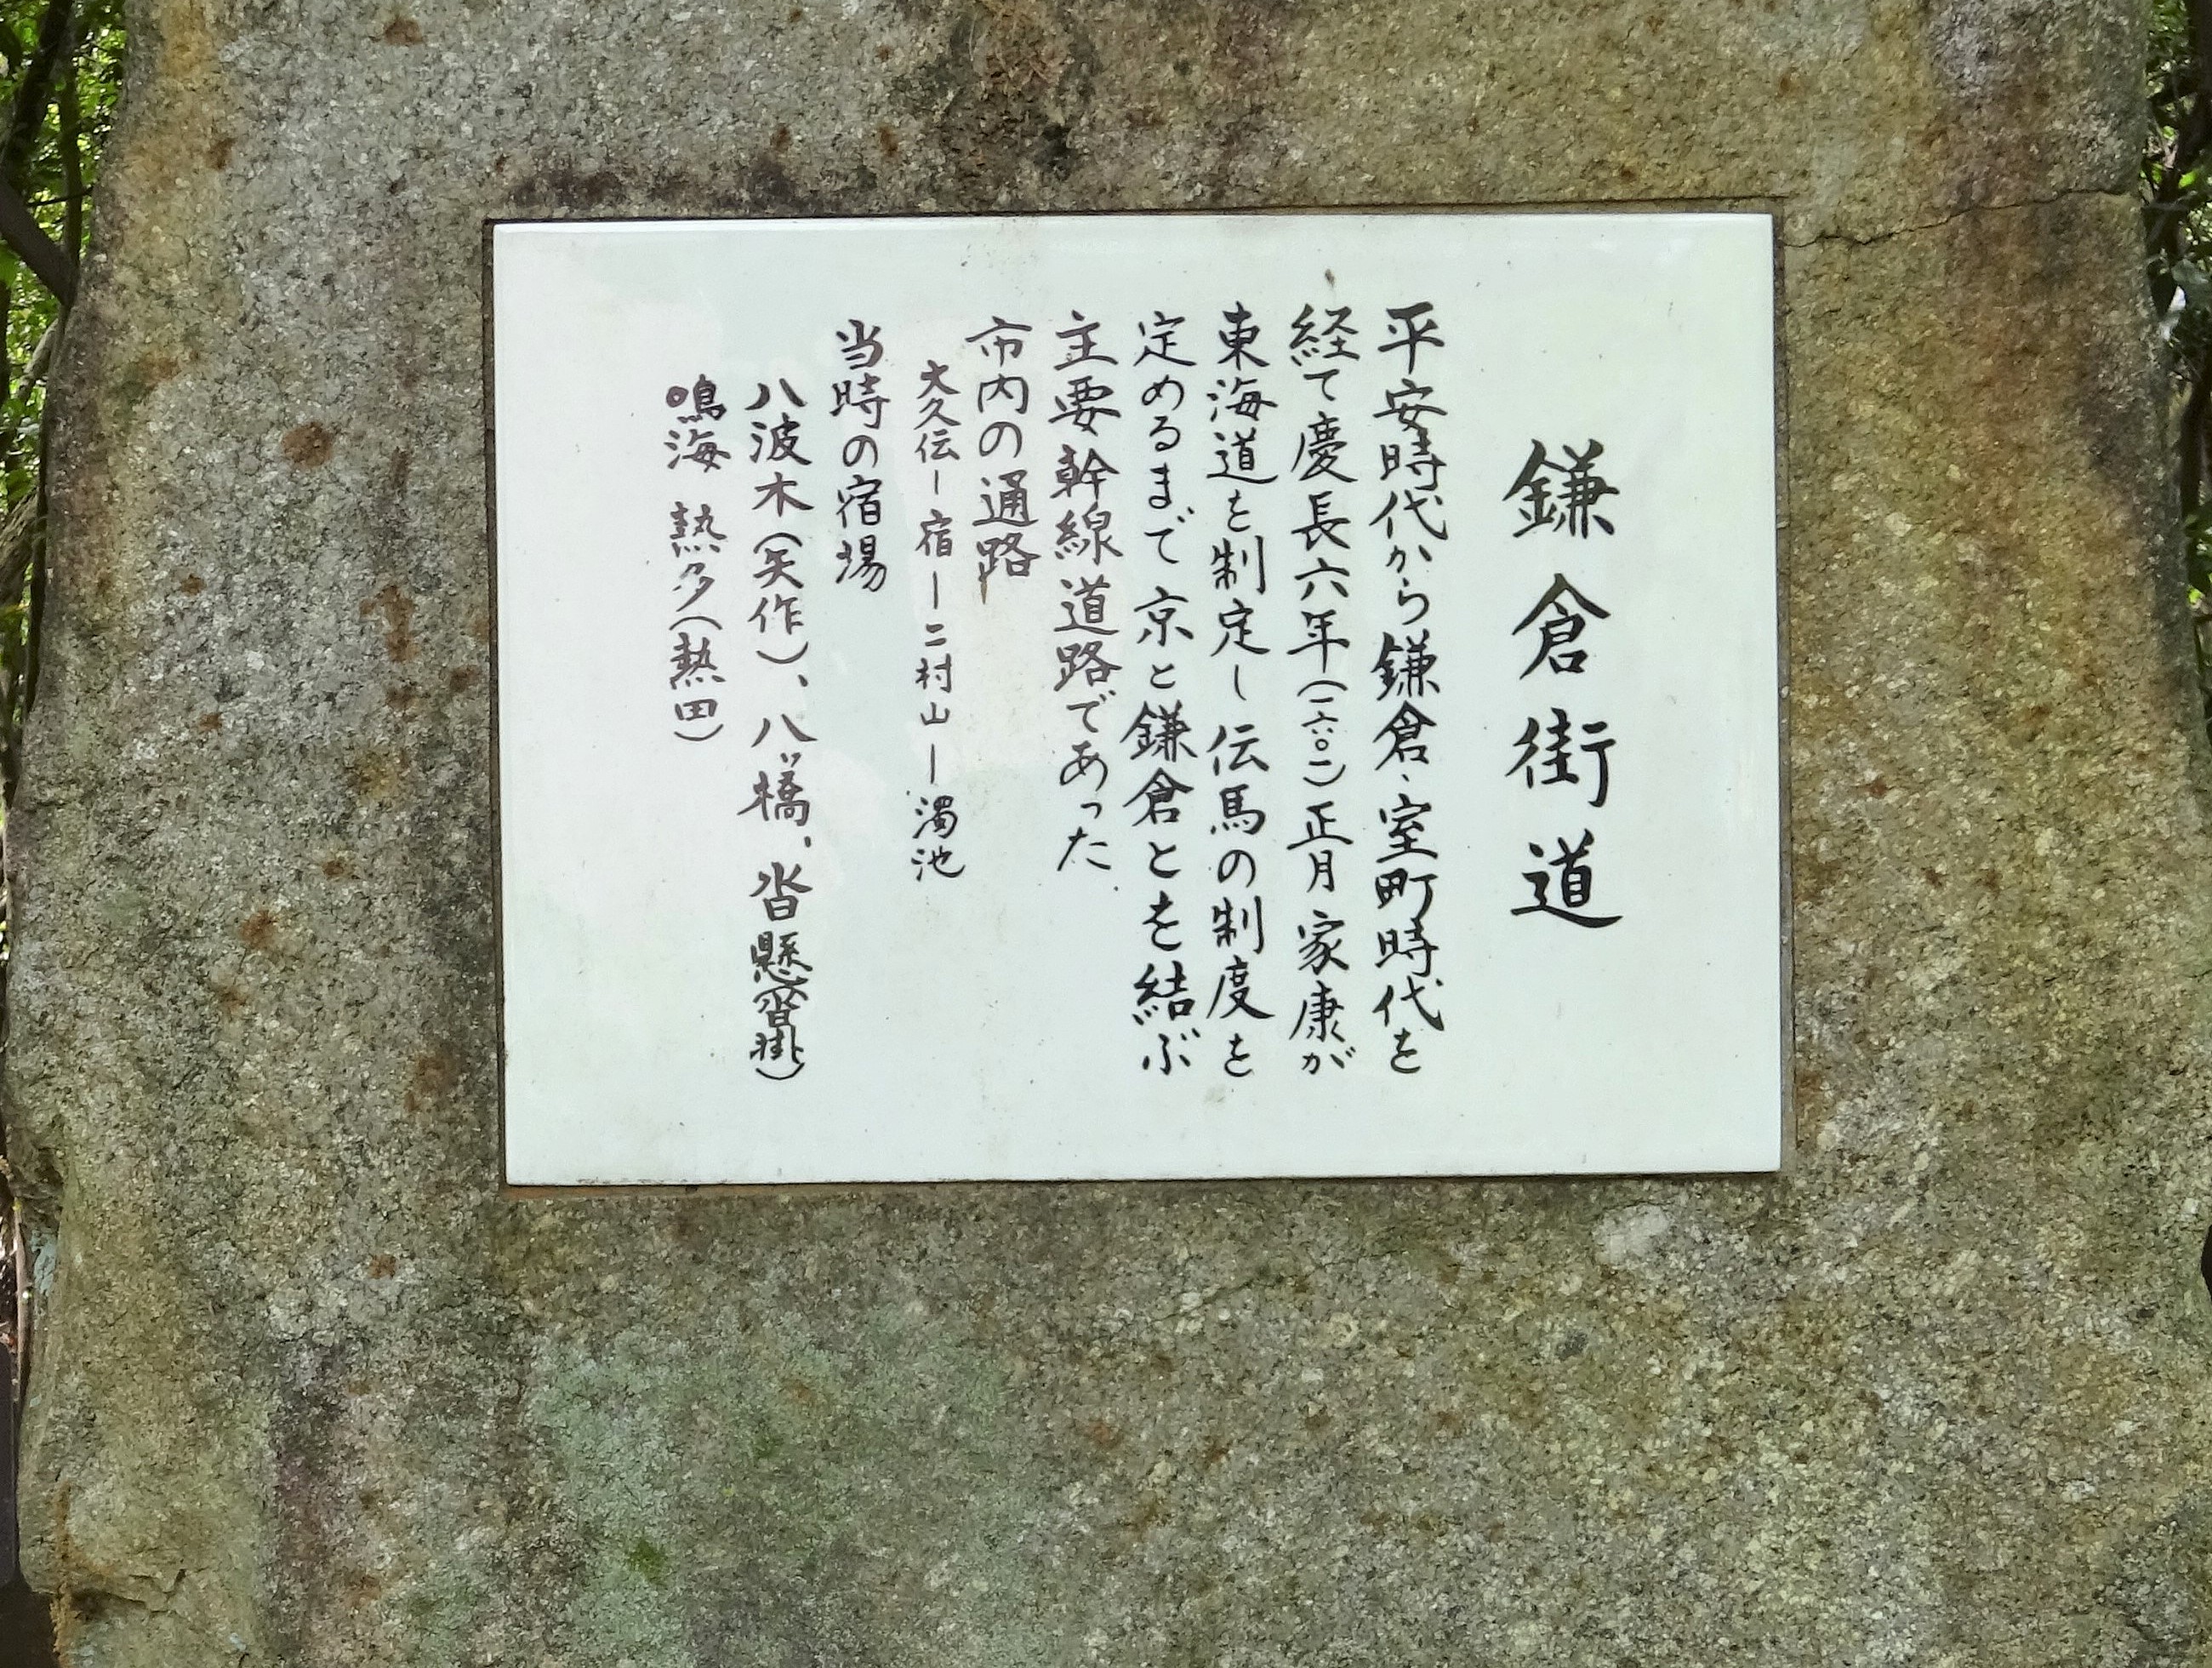 鎌倉街道
平安時代から鎌倉・室町時代を
経て慶長六年(一六〇一)正月家康が
東海道を制定し伝馬の制度を
定めるまで京と鎌倉とを結ぶ
主要幹線道路であった
市内の通路
大久伝ー宿ー二村山ー濁池
当時の宿場
八波木(矢作)、八ッ橋、沓懸(沓掛)
鳴海 熱夕(熱田)